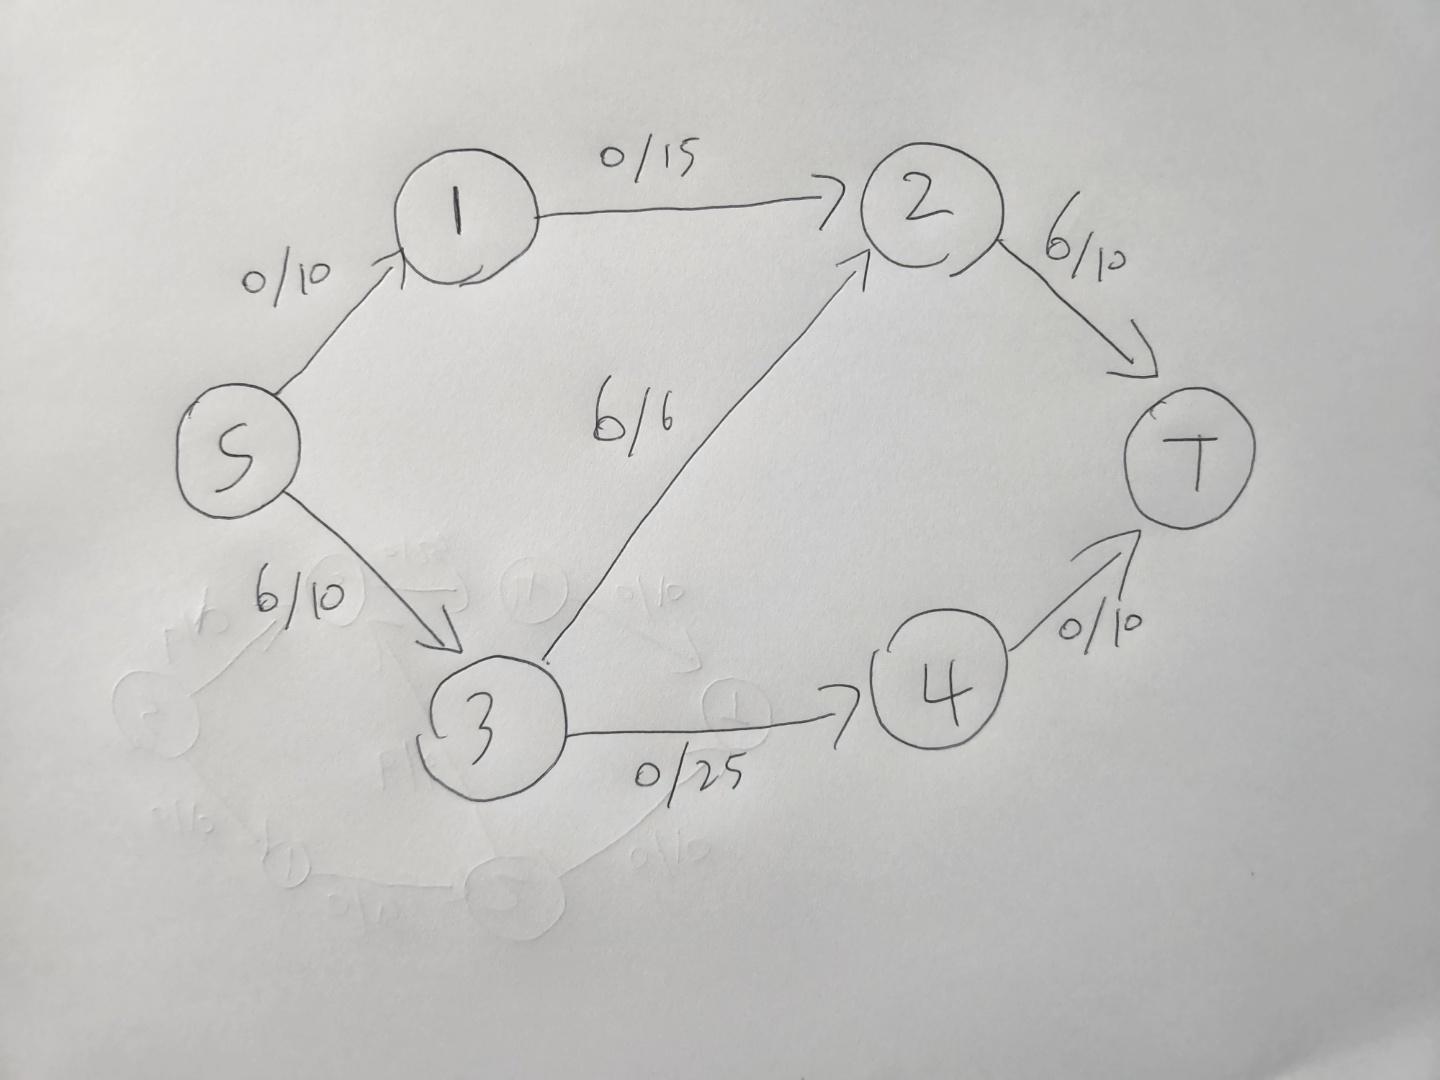 0/15
1
2
6/10
0/10
6/6
S
T
6/10
0/10
3
4
0/25